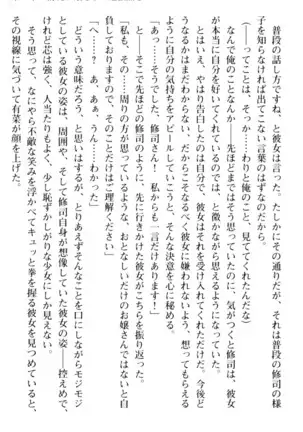 普段の話し方ですね、と彼女は言った。たしかにその通りだが、それは普段の修司の様
子を知らなければ出てこない言葉のはずなのだから。
(――ってことは、そっか……わりと俺のこと、見ててくれたんだな)
なんで俺のことなんか――先ほどまではそう思っていたのに、気がつくと修司は、彼女
が本当に自分を好いてくれているのでは、と微かながら思えるようになっていた。
とはいえ、やはり告白したのは自分で、彼女はそれを受け入れてくれただけだ。今後ど
うなるかはまだわからない、だからこそなるべく彼女に嫌われないよう、想ってもらえる
ように自分の気持ちをアピールしていこうと、そんな決意を心に秘める。
「あっ……そうでした、修司さん! 私からも一言だけありますっ!」
と――そこで先ほどの修司のように、先に行きかけた彼女がこちらを振り返った。
「私も、その……周りの方が思っているような、おとなしいだけのお嬢さんではないと自
負しておりますので、そのことだけはご理解くださいっ」
「へ……? あ、ああ、うん……わかった」
どういう意味だろう、と思いはするが、とりあえずそんなことを口にしながらモジモジ
としている彼女の姿は、周囲や、そして修司自身が想像していた彼女の姿――控えめで、
けれど芯は強く、人当たりもよく、少し恥ずかしがりな少女にしか見えない。
そう思って、なにやら不敵な笑みを浮かべてキュッと拳を握る彼女を見つめていると、
その視線に気づいて有菜が顔を上げた。